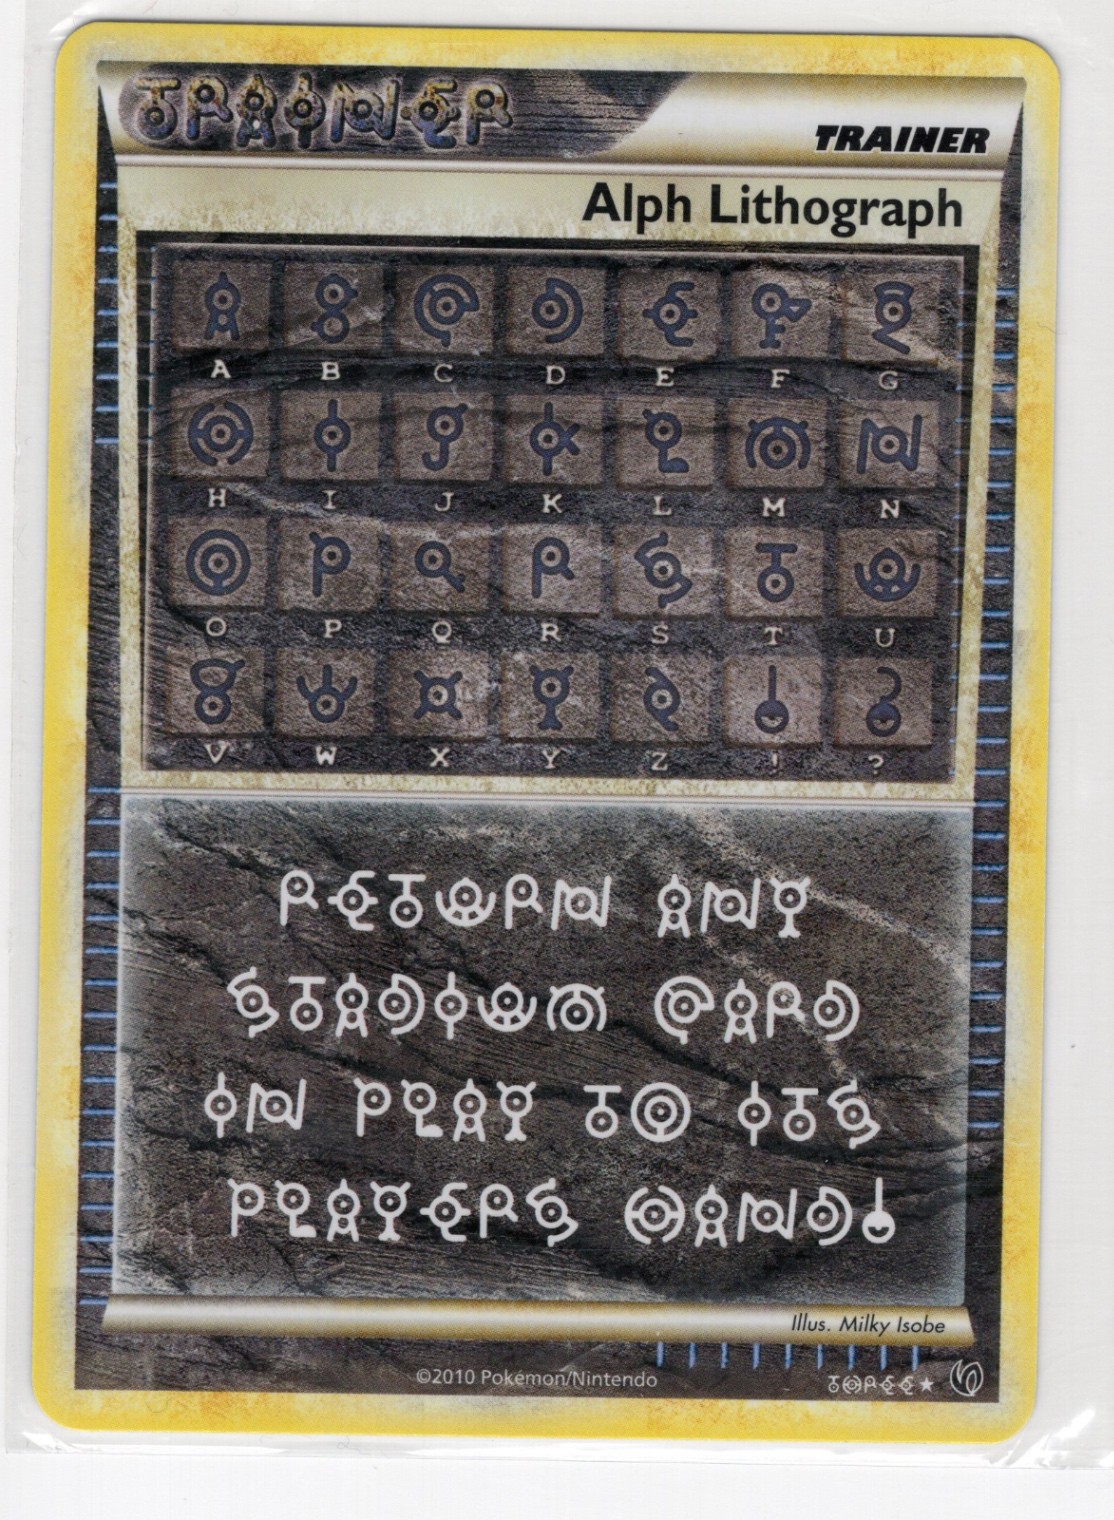 TRAINER
TRAINER
Alph Lithograph
A B C D E F G
A B C D E F G
H I J K L M N
H I J K L M N
O P Q R S T U
O P Q R S T U
V W X Y Z ! ?
V W X Y Z ! ?
RETURN ANY
STADIUM CARD
IN PLAY TO ITS
PLAYERS HAND!
Illus. Milky Isobe
©2010 Pokémon/Nintendo
THREE ★